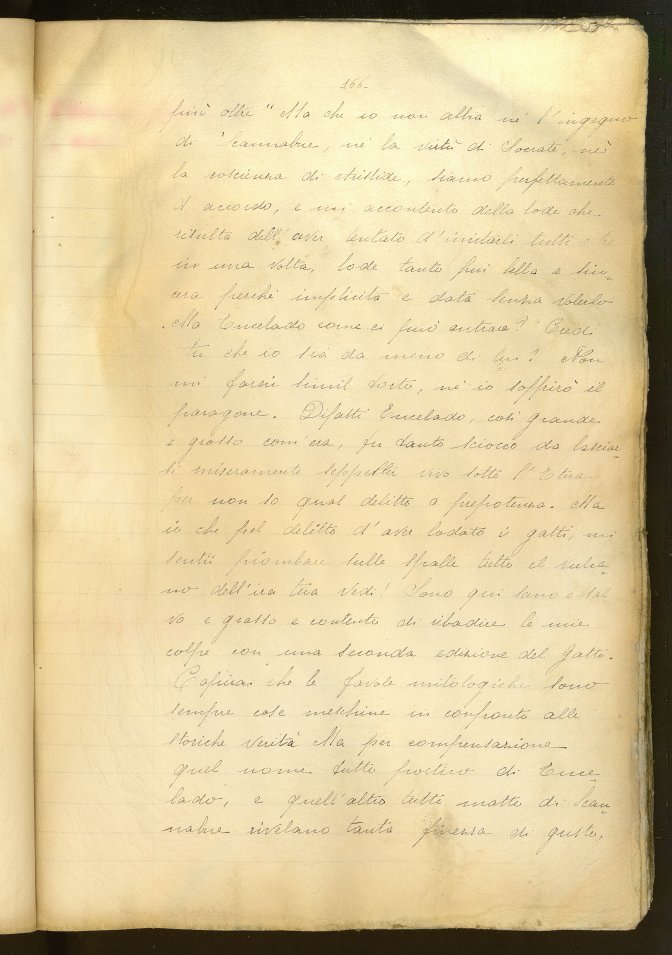 166.
più oltre" Ma che io non abbia nè l'ingegno
di Scannabue, nè la virtù di Socrate, nè
la coscienza di Aristide, siamo perfettamente
d'accordo, e mi accontento della lode che
risulta dell'aver tentato d'imitarli tutti e tre
in una volta, lode tanto più bella e sin-
cera perchè implicita e data senza volerlo
Ma Encelado come ci può entrare? Credi
tu che io sia da meno di lui? Non
mi farai simil torto, nè io soffrirò il
paragone. Difatti Encelado, così grande
e grosso com'era, fu tanto sciocco da lasciar-
si miseramente seppellir vivo sotto l'Etna
per non so qual delitto o prepotenza. Ma
io che pel delitto d'aver lodato i gatti, mi
sentii piombare sulle spalle tutto il vulca-
no dell'ira tua Vedi! Sono qui sano e sal
vo e grasso e contento di ribadire le mie
colpe con una seconda edizione del Gatto.
Capirai che le favole mitologiche sono
sempre cose meschine in confronto alle
storiche verità Ma per compensazione
quel nome tutto poetico di Ence-
lado, e quell'altro tutto matto di Scan-
nabue rivelano tanta finezza di gusto,